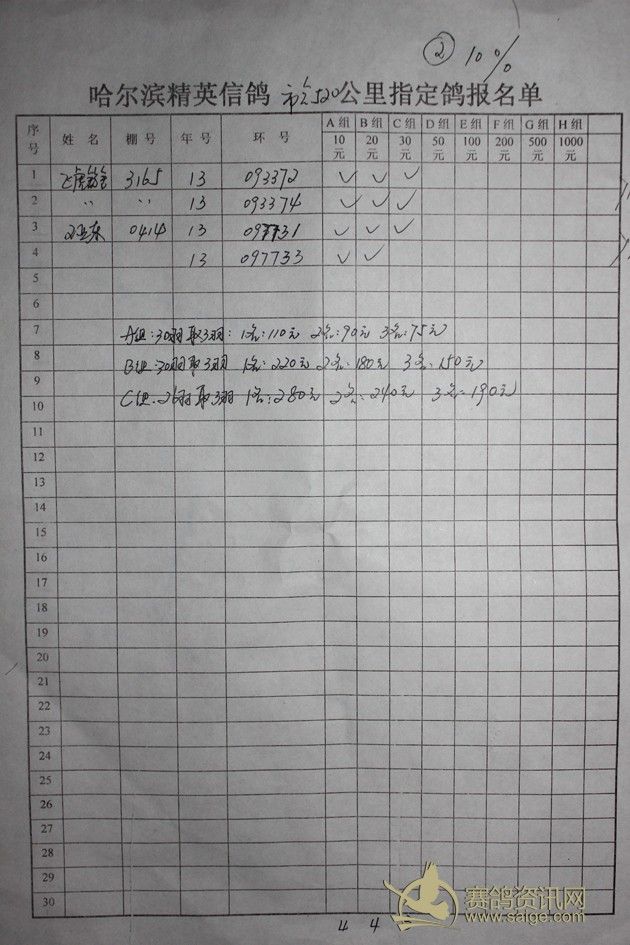 ② 10%
哈尔滨精英信鸽 市会520公里指定鸽报名单
序号 姓 名 棚 号 年 号 环 号 A组 B组 C组 D组 E组 F组 G组 H组
10元 20元 30元 50元 100元 200元 500元 1000元
1 3165 13 093372 ✓ ✓ ✓
2 〃 〃 13 093374 ✓ ✓ ✓
3 0414 13 097731 ✓ ✓ ✓
4 13 097733 ✓ ✓
5
6
7 A组:30羽取3羽: 1名:110元 2名:90元 3名:75元
8 B组:30羽取3羽 1名:220元 2名:180元 3名:150元
9
10 C组:26羽取3羽 1名:280元 2名:240元 3名:190元
11
12
13
14
15
16
17
18
19
20
21
22
23
24
25
26
27
28
29
30
4 4
赛鸽资讯网
www.saige.com